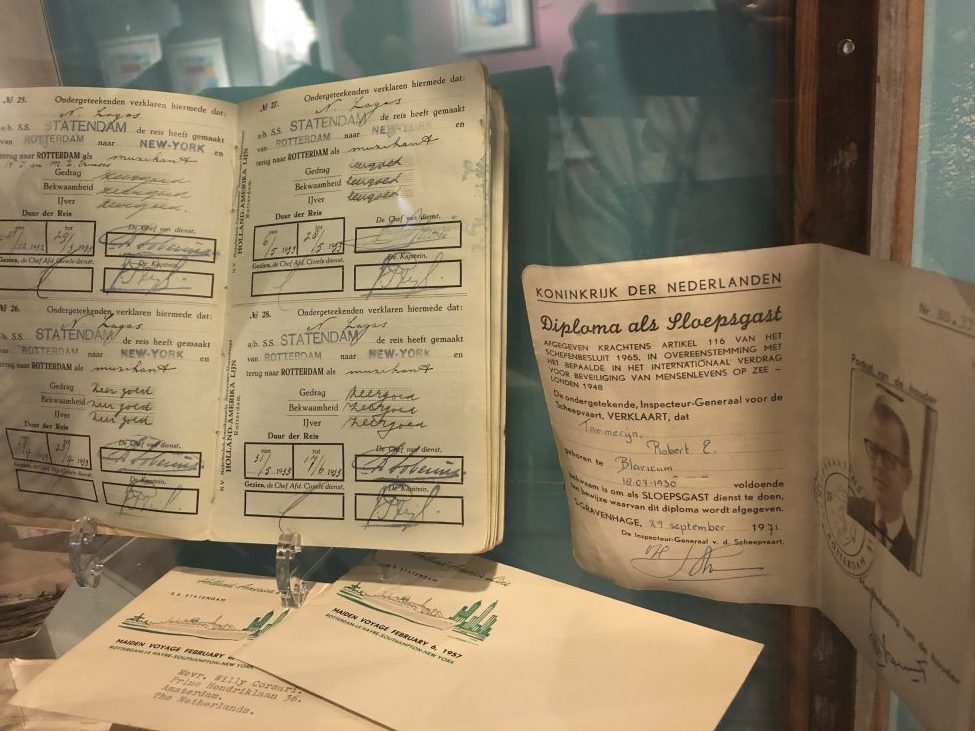 № 25. Ondergeteekenden verklaren hiermede dat:
N. Lagas
a/b. S.S. STATENDAM de reis heeft gemaakt
van ROTTERDAM naar NEW-YORK en
terug naar ROTTERDAM als muzikant
Gedrag zeergoed
Bekwaamheid zeergoed
IJver zeergoed.
Duur der Reis
De Chef van dienst,
tot
Gezien, de Chef Afd. Civiele dienst
De Kapitein,
№ 26. Ondergeteekenden verklaren hiermede dat:
N. Lagas
a/b. S.S. STATENDAM de reis heeft gemaakt
van ROTTERDAM naar NEW-YORK en
terug naar ROTTERDAM als muzikant
Gedrag zeer goed
Bekwaamheid zeer goed
IJver zeer goed
Duur der Reis
De Chef van dienst,
tot
Gezien, de Chef Afd. Civiele dienst
De Kapitein,
HOLLAND-AMERIKA LIJN
Rotterdam.
HOLLAND-AMERIKA LIJN
Rotterdam.
№ 27. Ondergeteekenden verklaren hiermede dat:
N. Lagas
a/b. S.S. STATENDAM de reis heeft gemaakt
van ROTTERDAM naar NEW-YORK en
terug naar ROTTERDAM als muzikant
Gedrag zeergoed
Bekwaamheid zeergoed
IJver zeergoed
Duur der Reis
De Chef van dienst,
van 6/5 1933 tot 26/5 1933
Gezien, de Chef Afd. Civiele dienst
De Kapitein,
№ 28. Ondergeteekenden verklaren hiermede dat:
N. Lagas
a/b. S.S. STATENDAM de reis heeft gemaakt
van ROTTERDAM naar NEW-YORK en
terug naar ROTTERDAM als muzikant
Gedrag zeergoed
Bekwaamheid zeergoed
IJver zeergoed
Duur der Reis
De Chef van dienst,
van 31/5 1933 tot 17/6 1933
Gezien, de Chef Afd. Civiele dienst
De Kapitein,
KONINKRIJK DER NEDERLANDEN
Diploma als Sloepsgast
AFGEGEVEN KRACHTENS ARTIKEL 116 VAN HET
SCHEPENBESLUIT 1965, IN OVEREENSTEMMING MET
HET BEPAALDE IN HET INTERNATIONAAL VERDRAG
VOOR BEVEILIGING VAN MENSENLEVENS OP ZEE –
LONDEN 1948
De ondergetekende, Inspecteur-Generaal voor de
Scheepvaart, VERKLAART, dat
Tammeryn,
Robert E.
geboren te Blaricum
18-07-1930 voldoende
bekwaam is om als SLOEPSGAST dienst te doen,
ten bewijze waarvan dit diploma wordt afgegeven.
'S-GRAVENHAGE, 29 september 1971.
De Inspecteur-Generaal v. d. Scheepvaart,
S.S. STATENDAM
MAIDEN VOYAGE FEBRUARY
ROTTERDAM-LE HAVRE-SOUTHAMPTON-NEW YORK
Mevr. Willy Corsari.
Prins Hendriklaan 36.
Amsterdam.
The Netherlands.
S.S. STATENDAM
MAIDEN VOYAGE FEBRUARY 6, 1957
ROTTERDAM-LE HAVRE-SOUTHAMPTON-NEW YORK